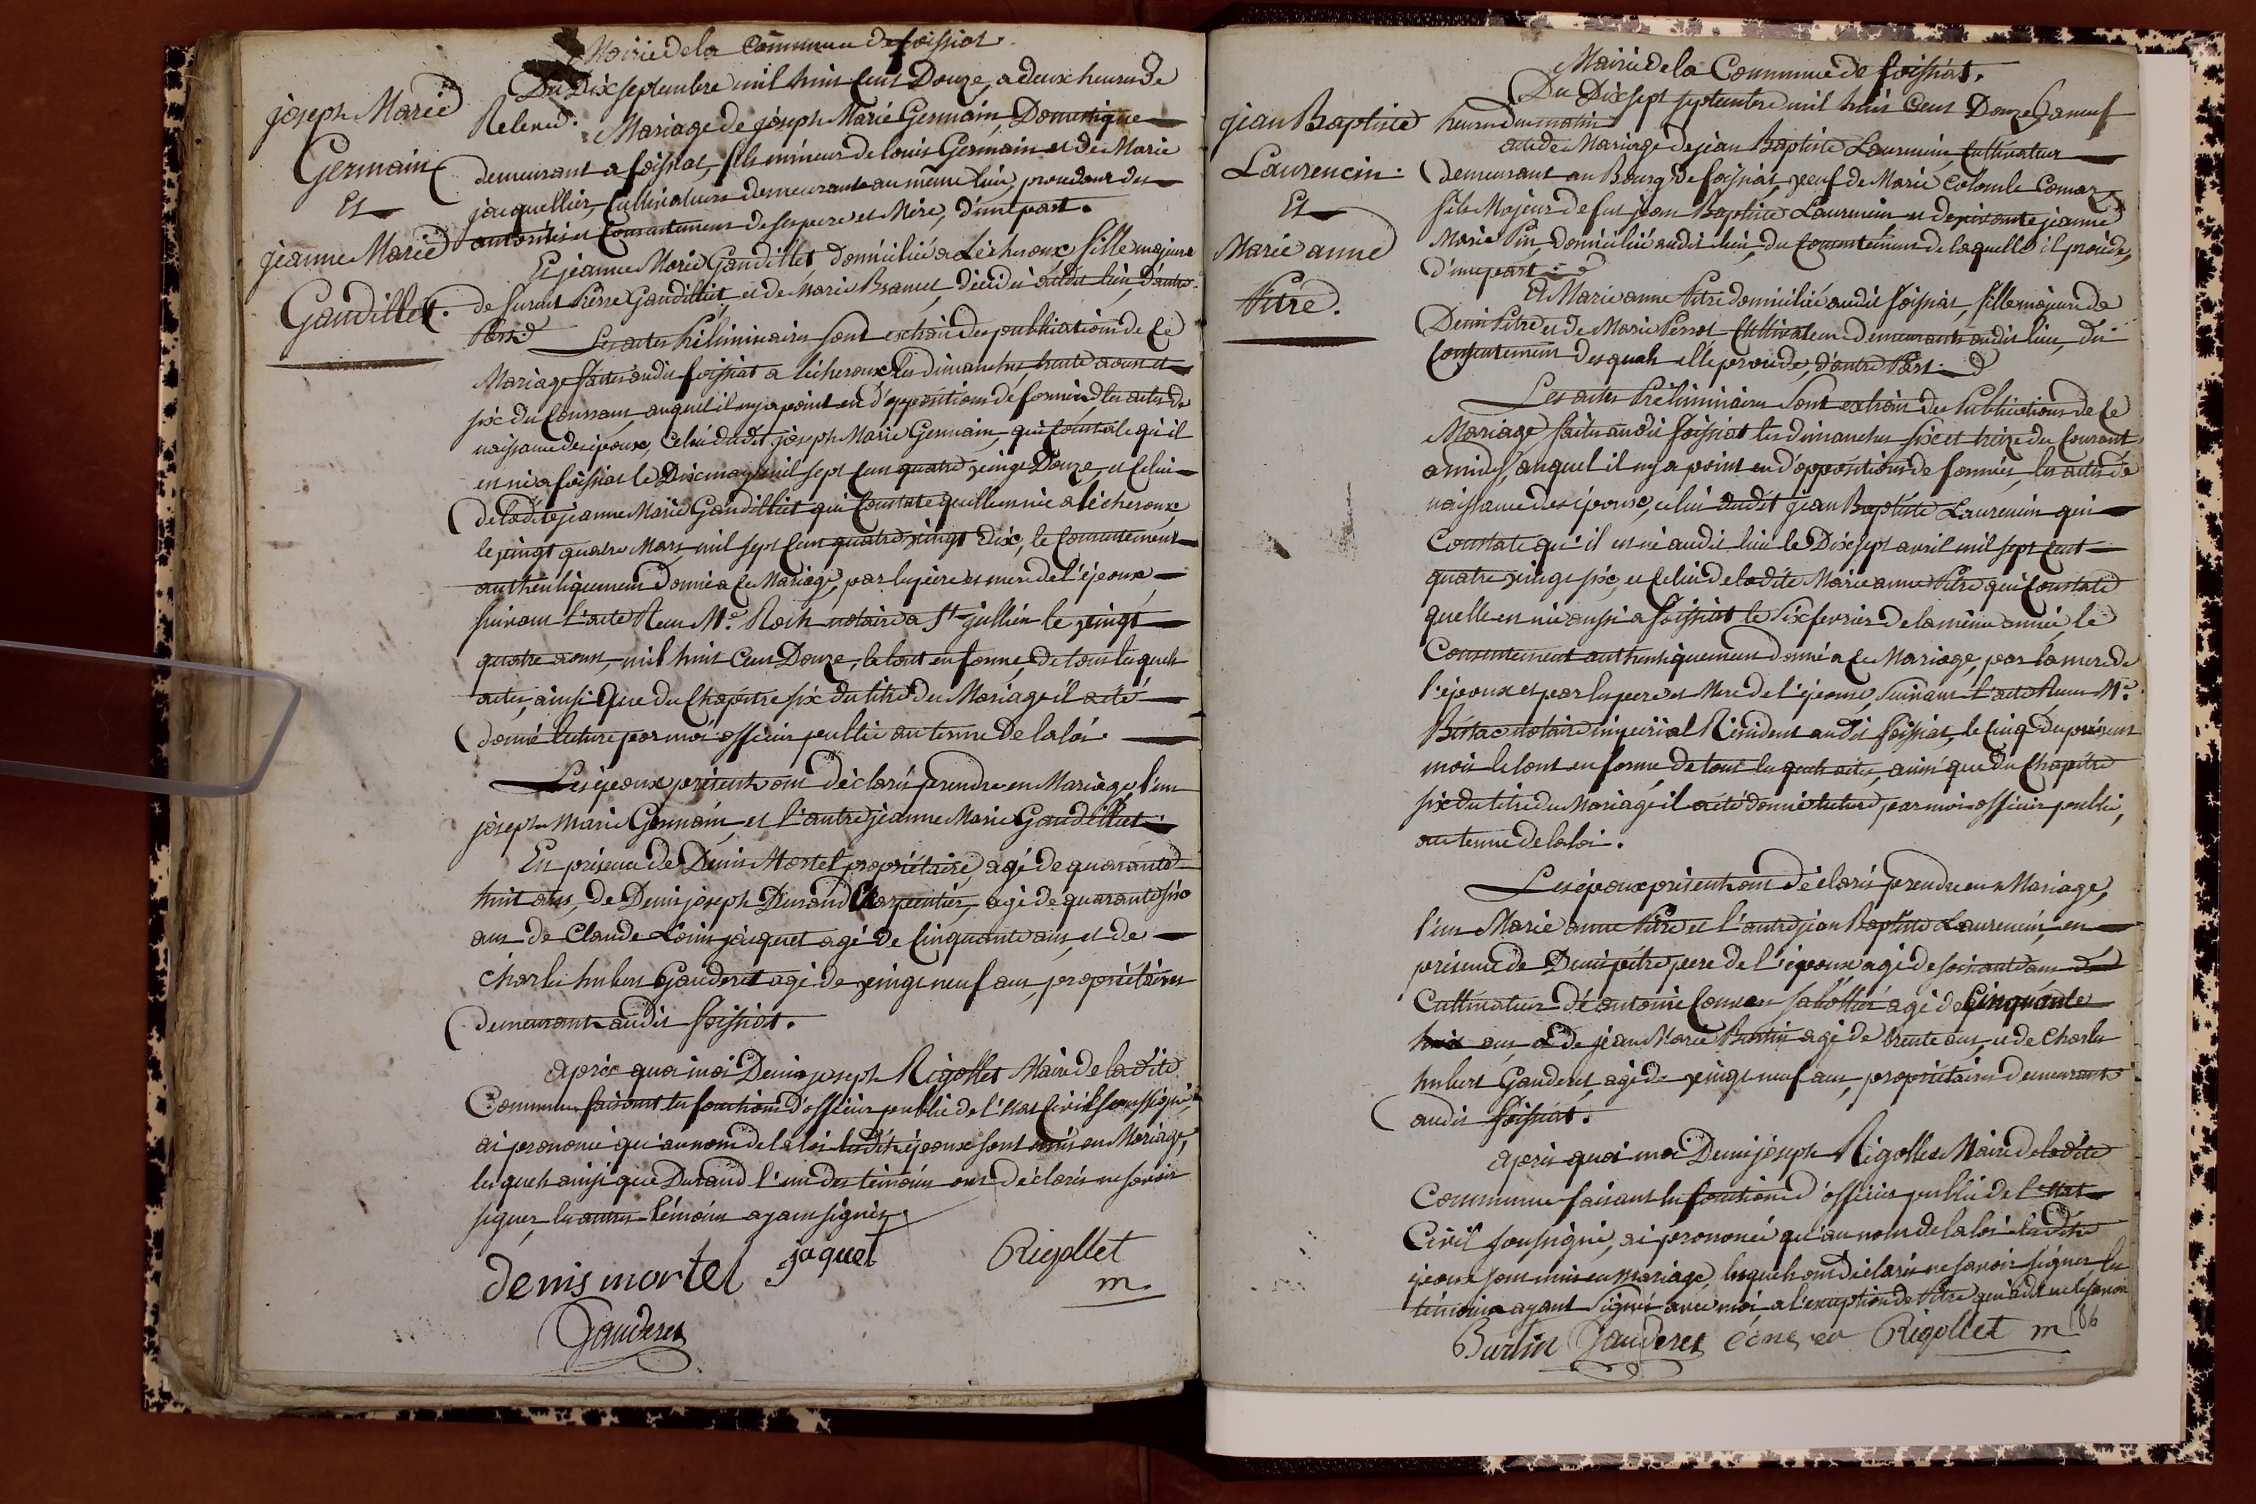 Mairie de la Commune de foissiat.
joseph Marie
Germain
Et
jeanne Marie
Gaudillet.
Du Dix septembre mil huit Cent Douze, a deux heures de
Relevée. Mariage de joseph Marie Germain, Domestique
demeurant a foissiat, fils mineur de Louis Germain et de Marie
jacquellier, Cultivateurs demeurants au même lieu, procedant des
autorités et Consentement de ses pere et Mere, d'une part.
Et jeanne Marie Gaudillet domiciliée a Lécheroux fille majeure
de furent Pierre Gaudillet, et de Marie Bramet, décédés audit lieu, d'autre
Part.
Les actes Préliminaires sont extrait des publications de Ce
Mariage faites audit foissiat a lécheroux les dimanches trente aoust et
six du Courrant, auquel il n'y a point eu d'oppositions de formées, les actes de
naissance des époux, celui dudit joseph Marie Germain, qui Constate qu'il
est né a foissiat le Dix may mil sept Cent quatre vingt Douze, et Celui
de ladite jeanne Marie Gaudillet qui Constate quelle est née a lécheroux,
le vingt quatre Mars mil sept Cent quatre vingt dix, le Consentement
authentiquement donné a Ce Mariage, par les père et mere de l'époux,
suivant l'acte Reçu Me. Roch notaire a St jullien le vingt
quatre aoust, mil huit Cent Douze, le tout en forme, de tous lesquels
actes, ainsi que du Chapitre six du titre du Mariage il a été
donné lecture par moi officier public au terme de la loi.
Les époux présents ont déclaré prendre en Mariage, l'un
joseph marie Germain, et l'autre jeanne Marie Gaudillet.
En présence de Denis Mortel propriétaire, agé de quarante
huit ans, de Denis joseph Durand Charpentier, agé de quarante six
ans de Claude Louis jacquet agé de Cinquante ans, et de
Charles hubert Gauderet agé de vingt neuf ans, propriétaires
demeurants audit foissiat.
après quoi moi Denis joseph Rigollet Maire de ladite
Commune faisant les fonctions d'officier public de l'état Civil soussigné,
ai prononcé qu'au nom de la loi lesdits époux sont unis en Mariage,
lesquels ainsi que Durand l'un des témoins ont déclaré ne savoir
signer, les autres témoins ayant signés.
denis mortel jaquet Rigollet
m.
Gauderet
Mairie de la Commune de foissiat.
jean Baptiste
Laurencin.
Et
Marie anne
Pitre.
Du Dix sept septembre mil huit Cent Douze a neuf
heures du matin
acte de Mariage de jean Baptiste Laurencin, Cultivateur
demeurant au Bourg de foissiat, veuf de Marie Colombe Comar
fils Majeur de fut jean Baptiste Laurencin et de vivante jeanne
Marie Pin, domiciliée audit lieu, du Consentement de laquelle il procède,
d'une part.
Et Marie anne Pitre domiciliée audit foissiat, fille majeure de
Denis Pitre et de Marie Perrot Cultivateurs demeurants audit lieu, du
Consentement desquels elle procède, d'autre Part.
Les actes Préliminaires sont extrait des Publications de Ce
Mariage faites audit foissiat les dimanches six et treize du Courrant
a midy, auquel il n'y a point eu d'oppositions de formées, les actes de
naissance des époux, celui dudit jean Baptiste Laurencin qui
Constate qu'il est né audit lieu le Dix sept avril mil sept Cent
quatre vingt six, et Celui de ladite Marie anne Pitre qui Constate
quelle est née aussi a foissiat le six fevrier de la même année, le
Consentement authentiquement donné a Ce Mariage, par la mere de
l'époux et par les pere et Mere de l'épouse, suivant l'acte Reçu Me.
Bissac notaire impérial Résident audit foissiat, le Cinq du présent
mois le tout en forme, de tous lesquels actes, ainsi que du Chapitre
six du titre du Mariage il a été donné lecture, par moi officier public,
au terme de la loi.
Les époux présents ont déclaré prendre en Mariage,
l'un Marie anne Pitre et l'autre jean Baptiste Laurencin, en
présence de Denis pitre pere de l'épouse agé de soixante ans
Cultivateur d'antoine Comar sabottier agé de Cinquante
huit ans, de jean Marie Burtin agé de trente ans, et de Charles
hubert Gauderet, agé de vingt neuf ans, propriétaires demeurants
audit foissiat.
après quoi moi Denis joseph Rigollet Maire de ladite
Commune faisant les fonctions d'officier public de l'état
Civil soussigné, ai prononcé qu'au nom de la loi lesdits
époux sont unis en mariage, lesquels ont déclaré ne savoir signer, les
témoins ayant signés avec moi a l'exception de Pitre qui a dit ne le savoir
Burtin Gauderet Rigollet m